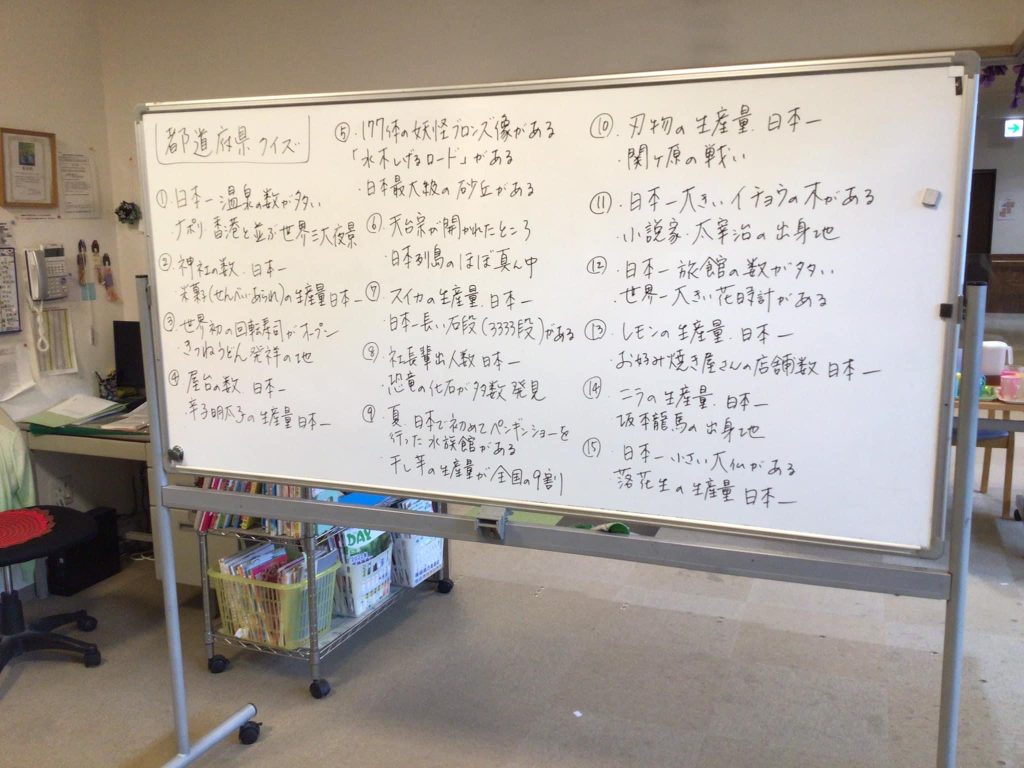 都道府県クイズ
①・日本一温泉の数が多い
・ナポリ、香港と並ぶ世界三大夜景
②・神社の数、日本一
・米菓子(せんべい・あられ)の生産量日本一
③・世界初の回転寿司がオープン
・きつねうどん発祥の地
④・屋台の数、日本一
・辛子明太子の生産量日本一
⑤・177体の妖怪ブロンズ像がある
「水木しげるロード」がある
・日本最大級の砂丘がある
⑥・天台宗が開かれたところ
・日本列島のほぼ真ん中
⑦・スイカの生産量、日本一
・日本一長い石段(3333段)がある
⑧・社長輩出人数日本一
・恐竜の化石が多数発見
⑨・夏、日本で初めてペンギンショーを
行った水族館がある
・干し芋の生産量が全国の9割
⑩・刃物の生産量、日本一
・関ヶ原の戦い
⑪・日本一大きいイチョウの木がある
・小説家・太宰治の出身地
⑫・日本一旅館の数が多い
・世界一大きい花時計がある
⑬・レモンの生産量、日本一
・お好み焼き屋さんの店舗数日本一
⑭・ニラの生産量、日本一
・坂本龍馬の出身地
⑮・日本一小さい大仏がある
・落花生の生産量日本一
DAY